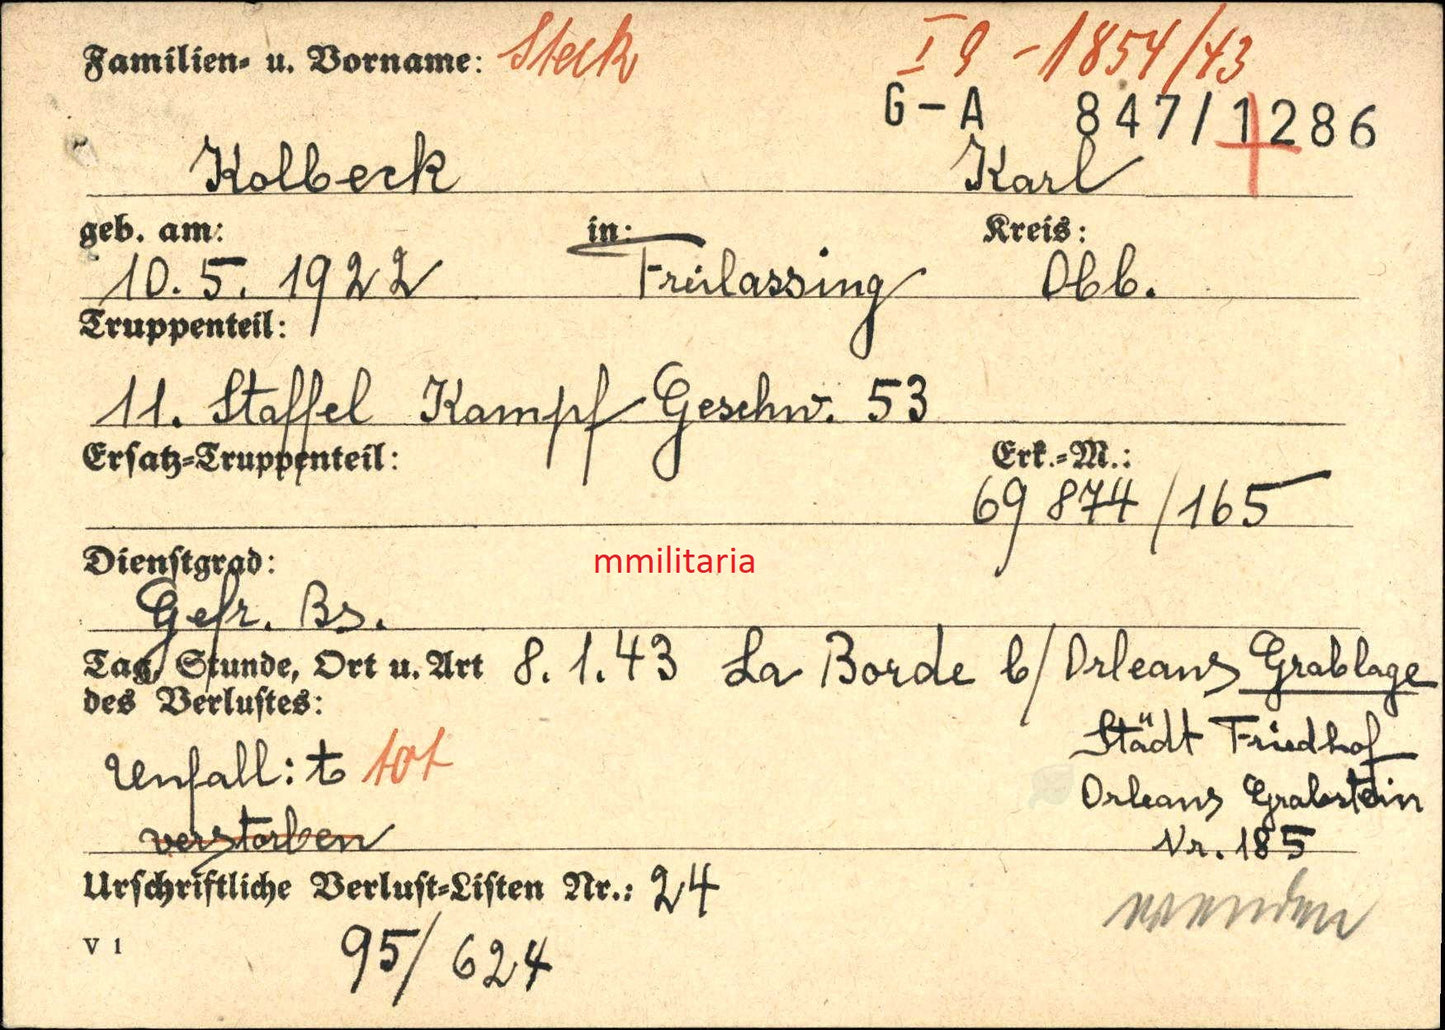 Familien- u. Vorname: Steck I 9 - 1854/43
G-A 847/1286
Kolbeck Karl
geb. am: in: Kreis:
10. 5. 1922 Freilassing Obb.
Truppenteil:
11. Staffel Kampf Geschw. 53
Ersatz-Truppenteil: Erk.-M.:
69 874 / 165
Dienstgrad:
mmilitaria
Gefr. Bs.
Tag, Stunde, Ort u. Art 8. 1. 43 La Borde b/ Orleans Grablage
des Verlustes:
Städt Friedhof
Unfall: t tot
Orleans Grabstein
verstorben
Nr. 185
Urschriftliche Verlust-Listen Nr.: 24
wenden
V 1
95/624